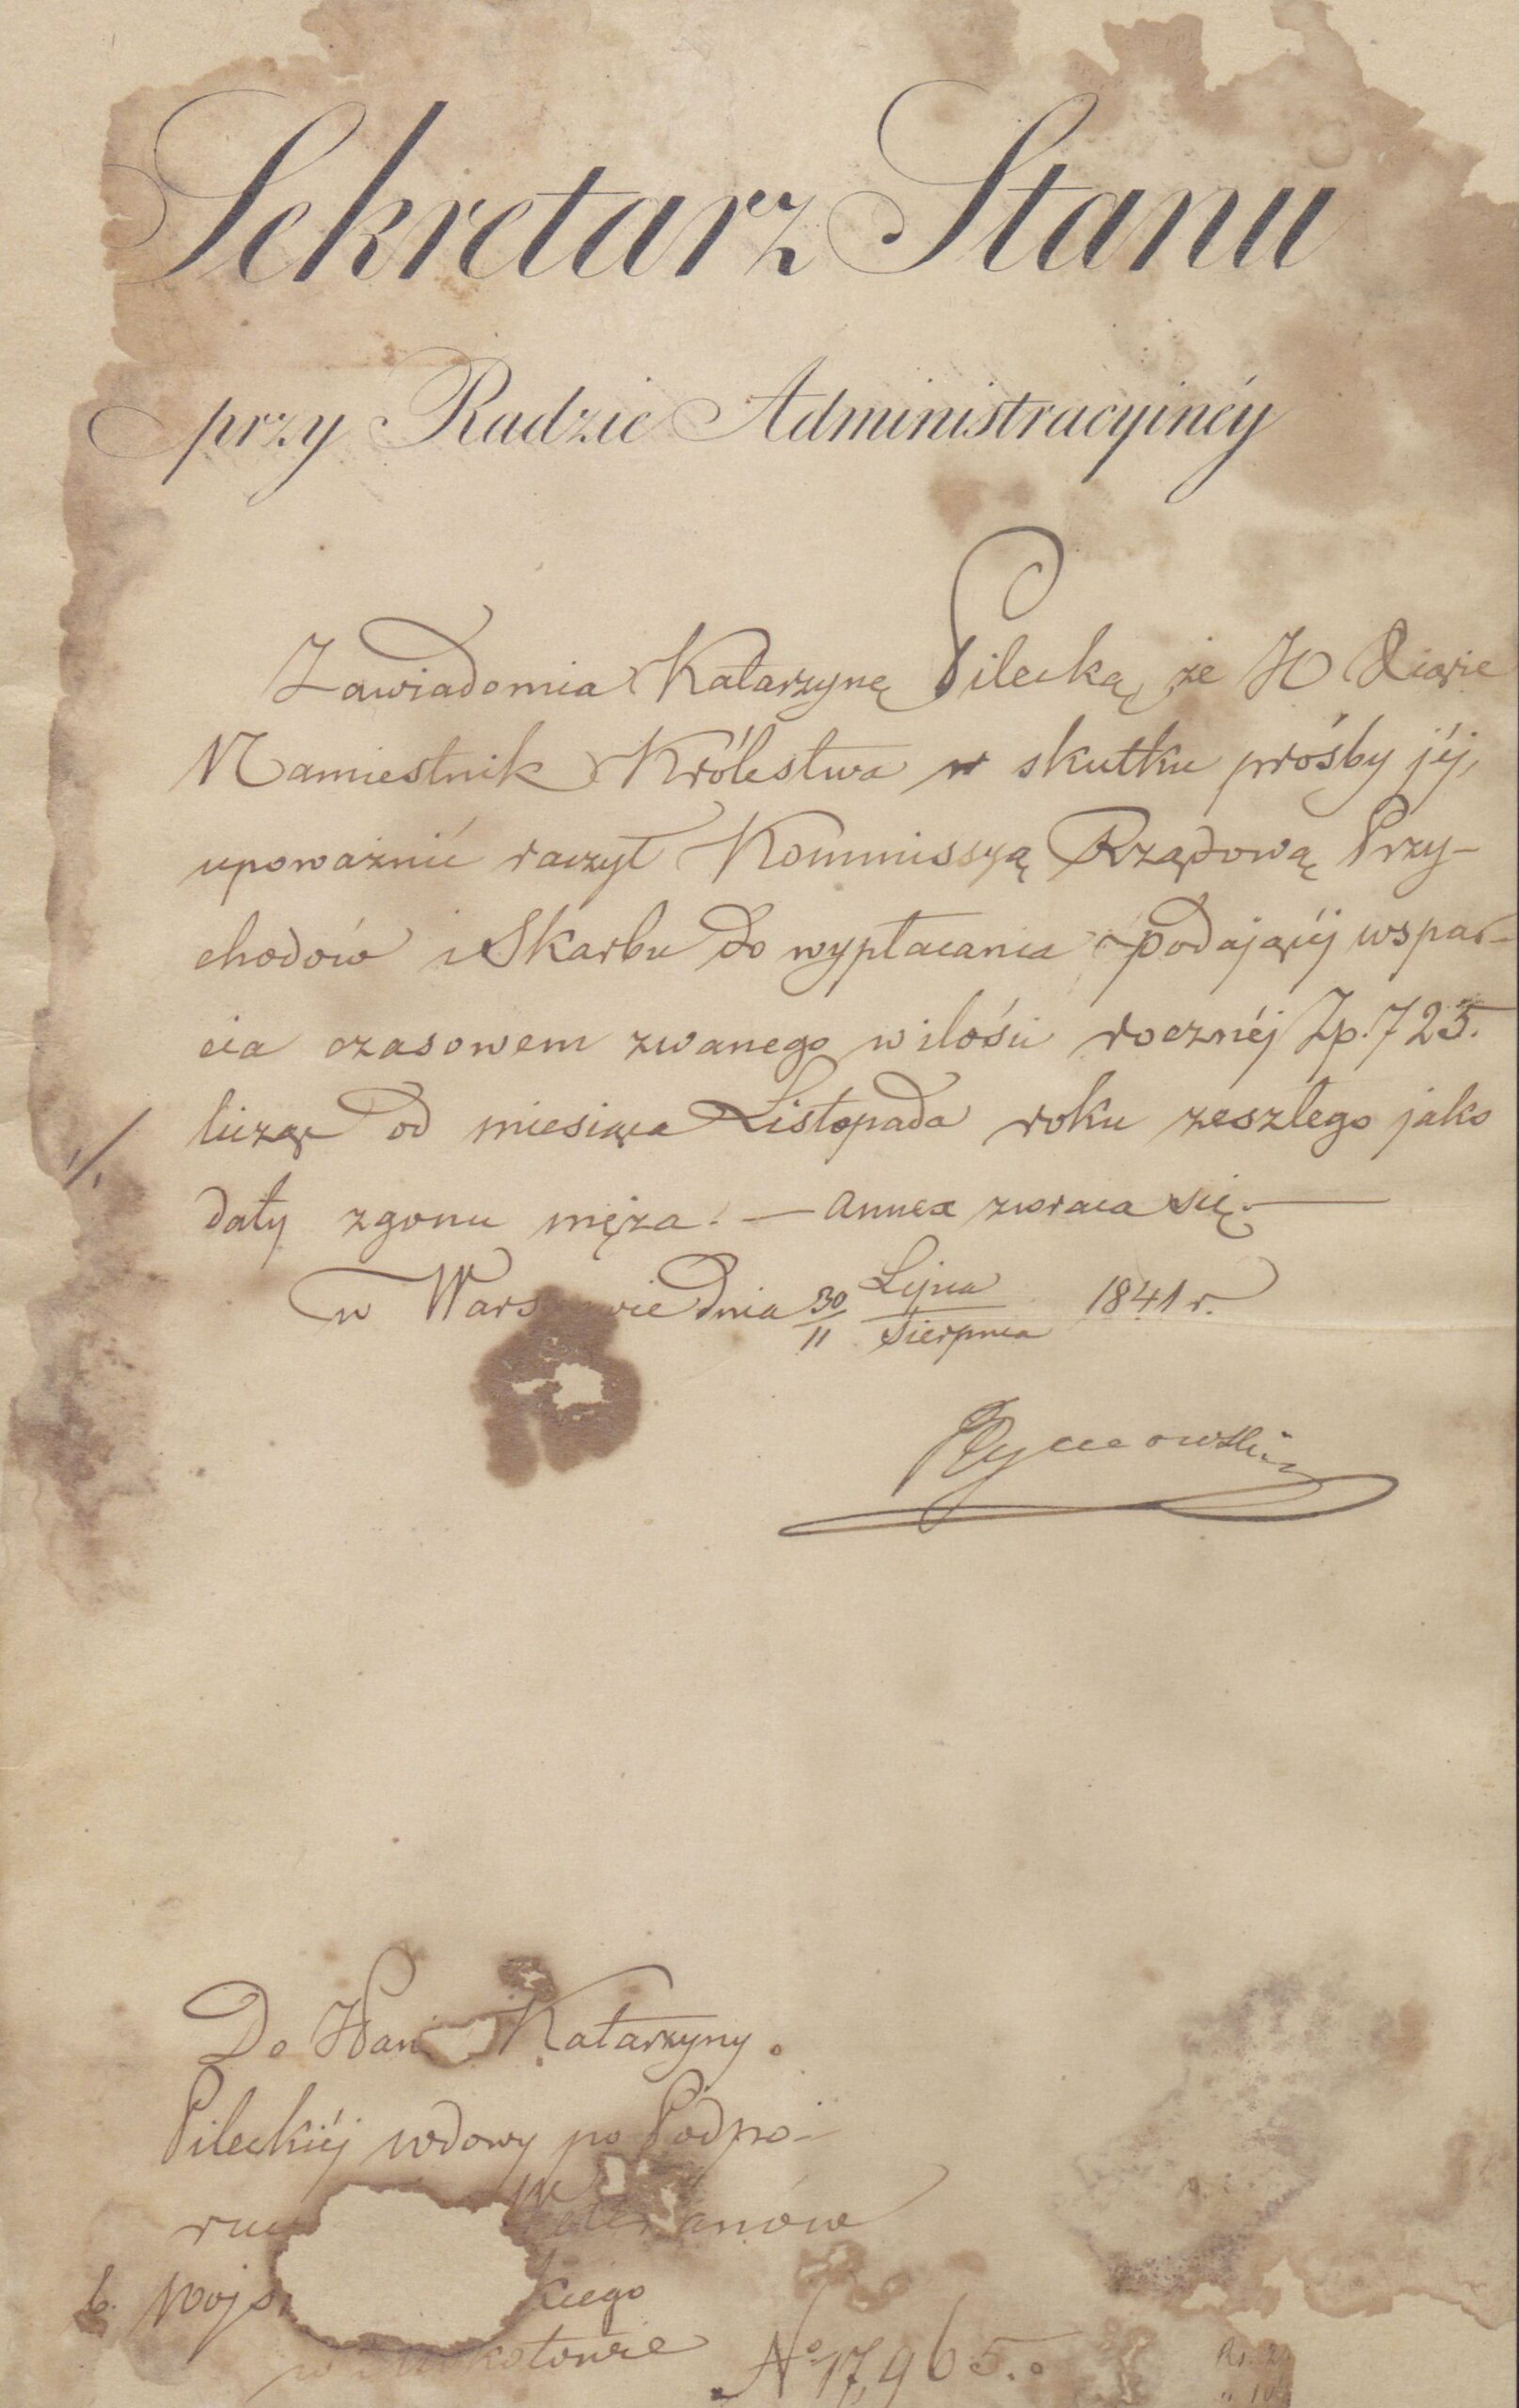 Sekretarz Stanu
przy Radzie Administracyinéy
Zawiadomia Katarzynę Pilecką, że JO Xiąże
Namiestnik Królestwa w skutku prośby jéj,
upoważnić raczył Kommissyą Rządową Przy-
chodów i Skarbu do wypłacania podającéj wspar-
cia czasowem zwanego w ilości rocznéj Zp. 725.
licząc od miesiąca Listopada roku zeszłego jako
daty zgonu męża. — Annex zwraca się. —
1/.
w Wars wie dnia 30/11 Lipca/Sierpnia 1841 r.
Rymowski
Do Katarzyny
Pileckiéj wdowy po Podpo-
ruc Weteranów
b. Wojs kiego
No 17,965.